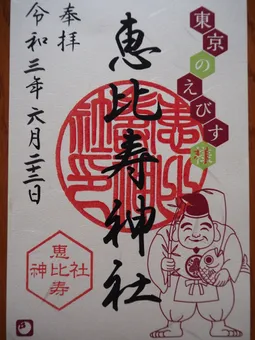 東京のえびす様
奉拝
恵比寿神社
令和三年六月二十三日
恵比寿
神社